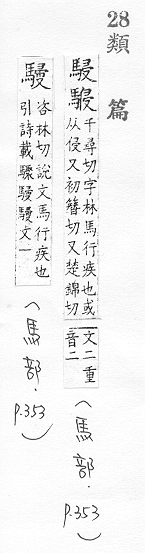 28
類篇
駸
䮼千尋切字林馬行疾也或
从侵又初簪切又楚錦切
文二重
音二
(馬部.
p.353)
駸咨林切說文馬行疾也
引詩載驟駸駸文一
(馬部.
p.353)